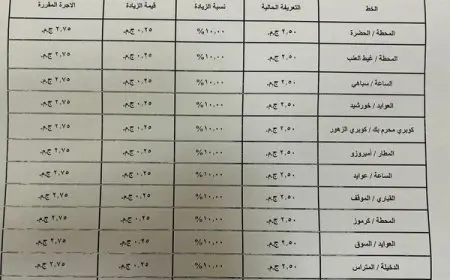 الخط التعريفة الحالية نسبة الزيادة قيمة الزيادة الاجرة المقررة
المحطة / الحضرة ٢,٥٠ ج.م. ١٠,٠٠% ٠,٢٥ ج.م. ٢,٧٥ ج.م.
المحطة / غيط العنب ٢,٥٠ ج.م. ١٠,٠٠% ٠,٢٥ ج.م. ٢,٧٥ ج.م.
الساعة / سباهي ٢,٥٠ ج.م. ١٠,٠٠% ٠,٢٥ ج.م. ٢,٧٥ ج.م.
العوايد / خورشيد ٢,٥٠ ج.م. ١٠,٠٠% ٠,٢٥ ج.م. ٢,٧٥ ج.م.
كوبري محرم بك / كوبري الزهور ٢,٥٠ ج.م. ١٠,٠٠% ٠,٢٥ ج.م. ٢,٧٥ ج.م.
المطار / أمبروزو ٢,٥٠ ج.م. ١٠,٠٠% ٠,٢٥ ج.م. ٢,٧٥ ج.م.
الساعة / عوايد ٢,٥٠ ج.م. ١٠,٠٠% ٠,٢٥ ج.م. ٢,٧٥ ج.م.
القباري / الموقف ٢,٥٠ ج.م. ١٠,٠٠% ٠,٢٥ ج.م. ٢,٧٥ ج.م.
المحطة / كرموز ٢,٥٠ ج.م. ١٠,٠٠% ٠,٢٥ ج.م. ٢,٧٥ ج.م.
العوايد / السوق ٢,٥٠ ج.م. ١٠,٠٠% ٠,٢٥ ج.م. ٢,٧٥ ج.م.
الدخيلة / المتراس ٢,٥٠ ج.م. ١٠,٠٠% ٠,٢٥ ج.م. ٢,٧٥ ج.م.